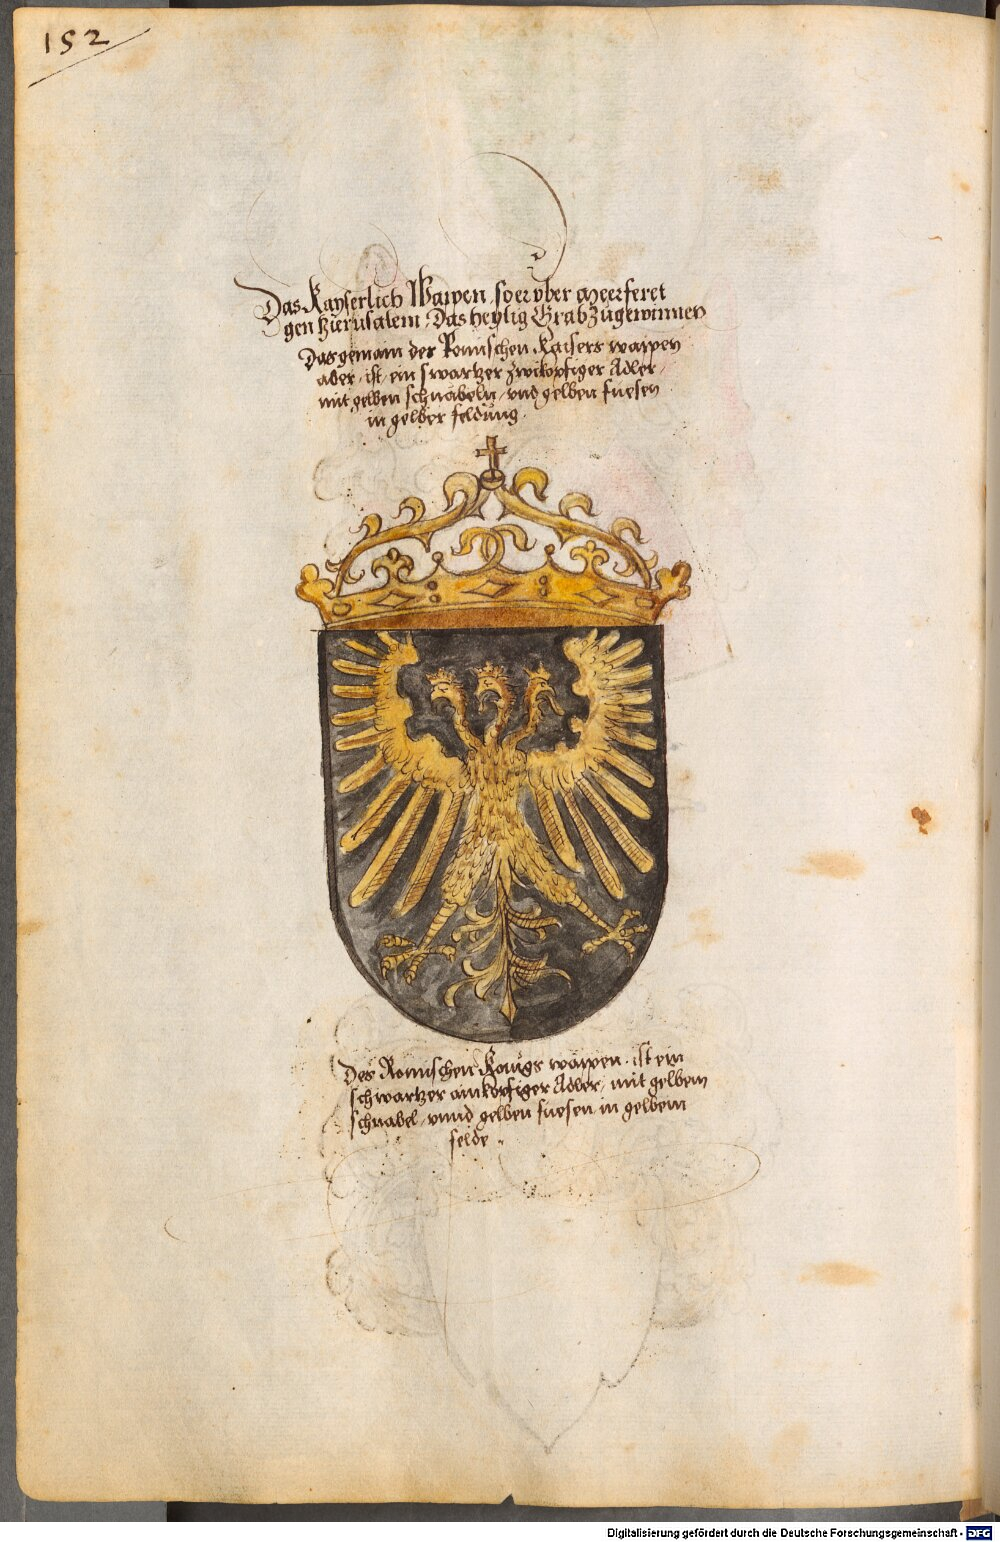 152
Das Kayserlich Wapen, so er vber meer feret
gen Hierusalem, Das heylig Grab zugewinnen
Das gemain der Romischen Kaisers wapen
aber, ist, ein swartzer zwikopfiger Adler,
mit gelben schnäbeln, vnd gelben fuesen
in gelber feldung.
Des Romischen Konigs wapen. ist ein
schwartzer ainkopfiger Adler, mit gelbem
schnabel, vnnd gelben fuesen in gelbem
felde.
Digitalisierung gefördert durch die Deutsche Forschungsgemeinschaft - DFG